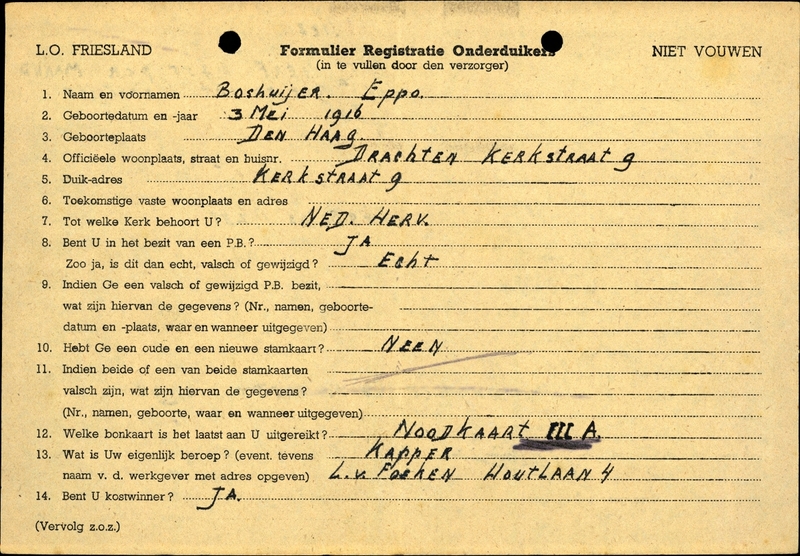 L.O. FRIESLAND Formulier Registratie Onderduikers NIET VOUWEN
(in te vullen door den verzorger)
1. Naam en voornamen Boshuijer. Eppo.
2. Geboortedatum en -jaar 3 Mei 1916
3. Geboorteplaats Den Haag.
4. Officiëele woonplaats, straat en huisnr. Drachten Kerkstraat 9
5. Duik-adres Kerkstraat 9
6. Toekomstige vaste woonplaats en adres
7. Tot welke Kerk behoort U? Ned. Herv.
8. Bent U in het bezit van een P.B.? Ja
Zoo ja, is dit dan echt, valsch of gewijzigd? Echt
9. Indien Ge een valsch of gewijzigd P.B. bezit,
wat zijn hiervan de gegevens? (Nr., namen, geboorte-
datum en -plaats, waar en wanneer uitgegeven)
10. Hebt Ge een oude en een nieuwe stamkaart? Neen
11. Indien beide of een van beide stamkaarten
valsch zijn, wat zijn hiervan de gegevens?
(Nr., namen, geboorte, waar en wanneer uitgegeven)
12. Welke bonkaart is het laatst aan U uitgereikt? Noodkaart III A.
13. Wat is Uw eigenlijk beroep? (event. tevens Kapper
naam v. d. werkgever met adres opgeven) L. v. Houtlaan 4
14. Bent U kostwinner? Ja.
(Vervolg z.o.z.)